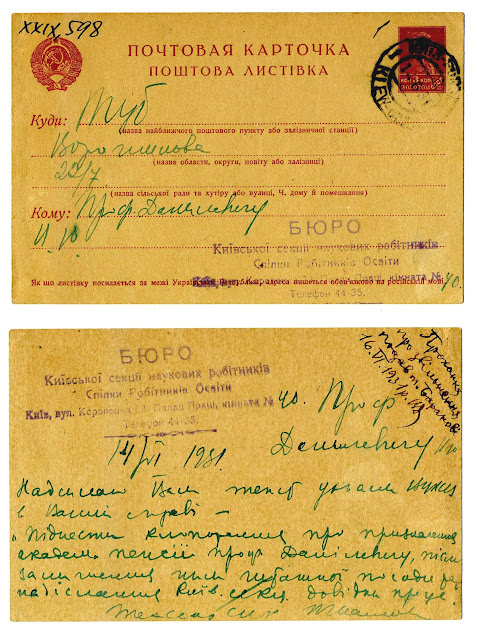 XXIX, 598
ПОЧТОВАЯ КАРТОЧКА
ПОШТОВА ЛИСТІВКА
3 КОП. 3
ЗОЛОТОМ
Куди: Тут
(назва найближчого поштового пункту або залізничної станції)
Ворошилова
(назва области, округи, повіту або залізниці)
22/7
(назва сільської ради та хутіру або вулиці, Ч. дому й помешкання)
Кому: Проф. Данілевичу
БЮРО
Київської секції наукових робітників
Спілки Робітників Освіти
Київ, вул. Короленка Палац Праці, кімната № 40.
Телефон 44-35.
Як що листівку посилається за межі адреса пишеться обов'язково на російській мові.
БЮРО
Київської секції наукових робітників
Спілки Робітників Освіти
Київ, вул. Короленка Палац Праці, кімната № 40.
Телефон 44-35.
Прохання
про звільнення
16.VI.1931 р.
Проф
Данілевичу
14/VI 1931
Надсилаю Вам текст ухвали
в Вашій справі –
"Піднести клопотання про призначення
академ. пенсії проф Данілевичу, після
залишення ним штатної посади
надіслання Київ. довідки про це.